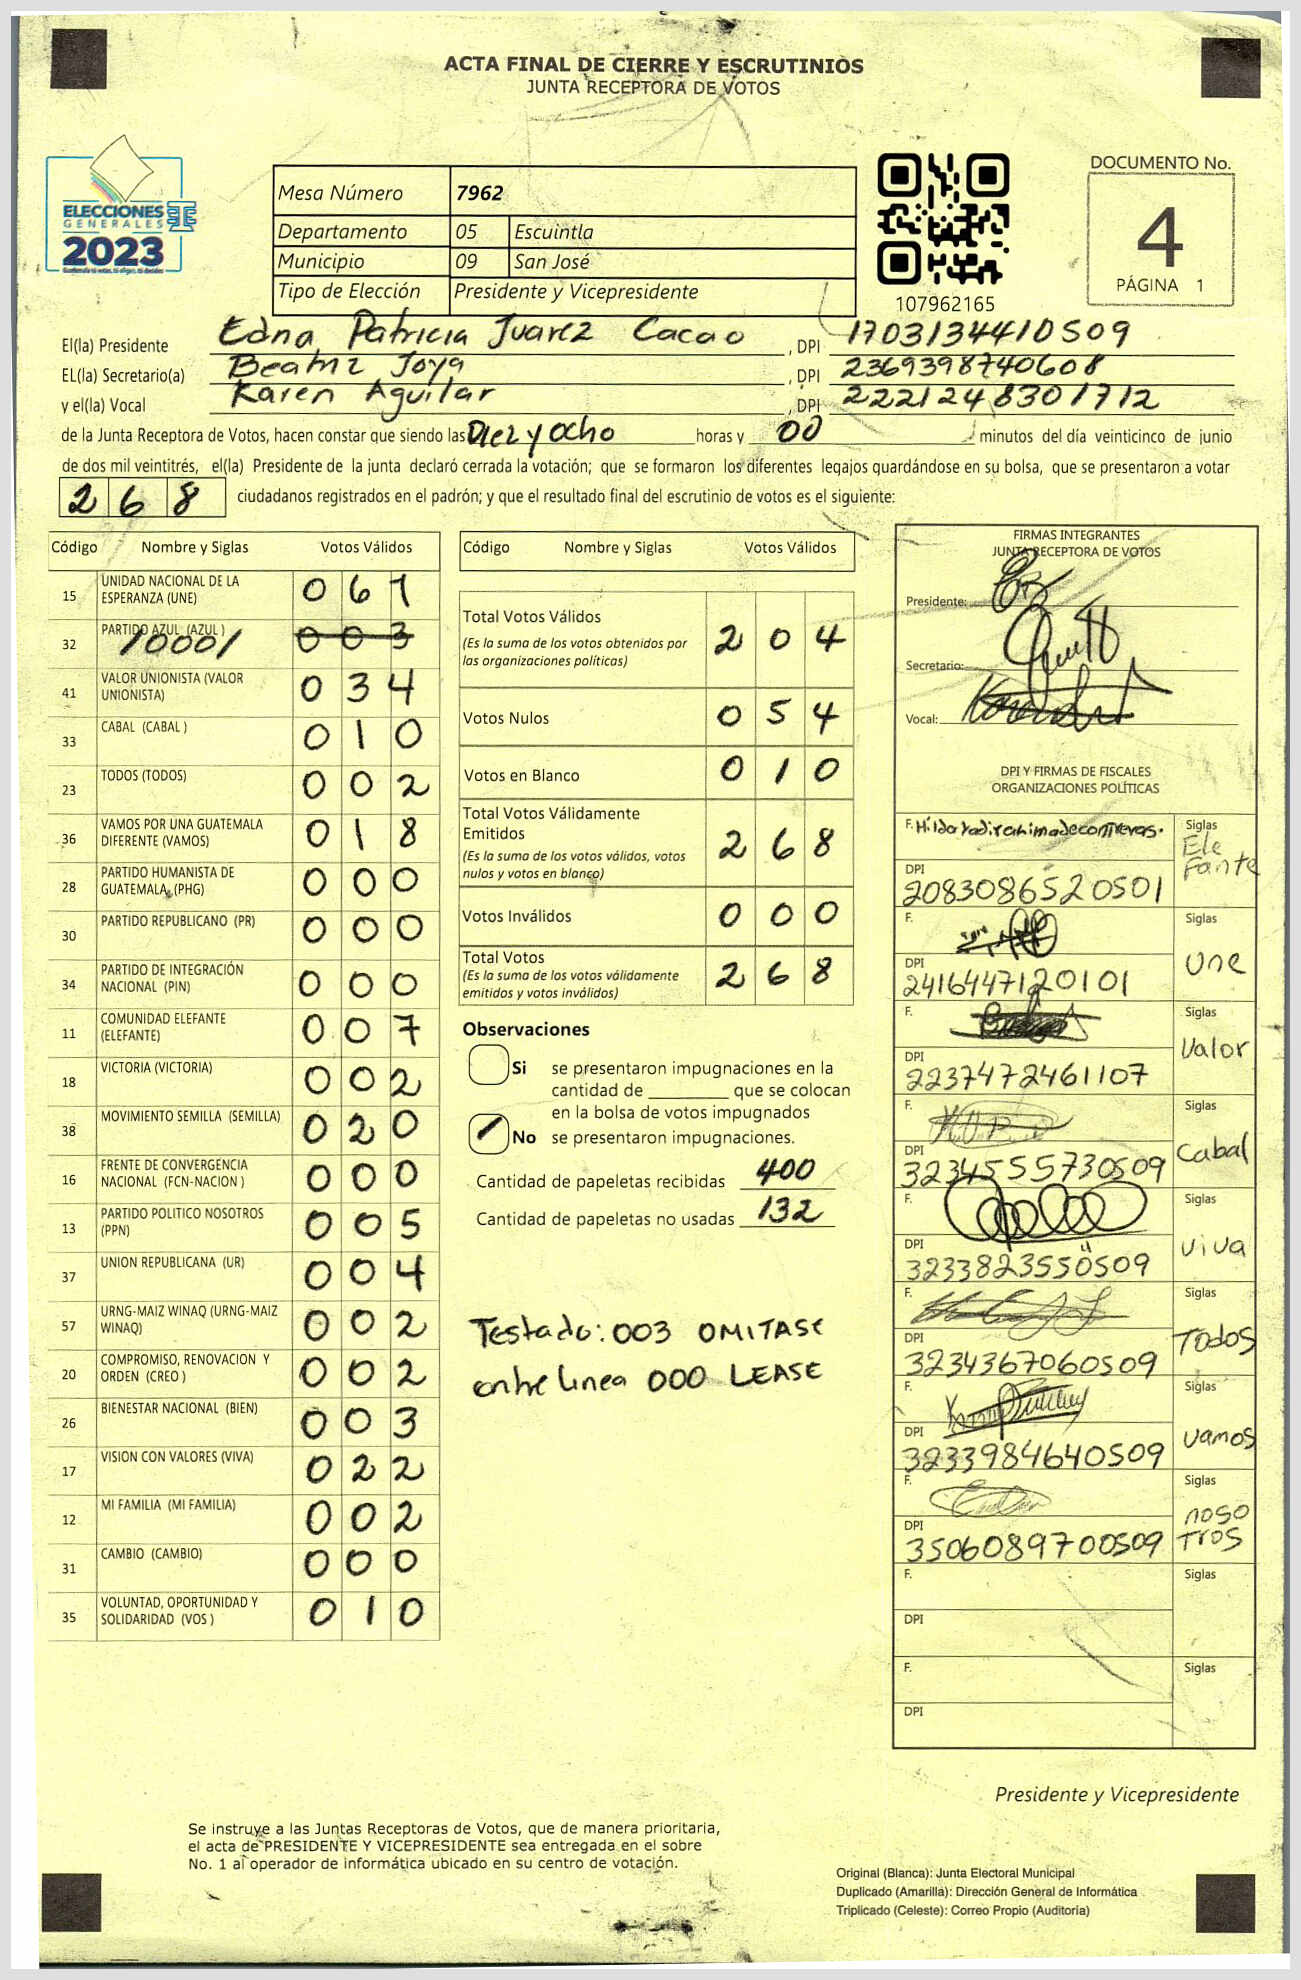 ACTA FINAL DE CIERRE Y ESCRUTINIOS
JUNTA RECEPTORA DE VOTOS
ELECCIONES
GENERALES
2023
Mesa Número 7962
Departamento 05 Escuintla
Municipio 09 San José
Tipo de Elección Presidente y Vicepresidente
107962165
DOCUMENTO No.
4
PÁGINA 1
El(la) Presidente Edna Patricia Juarez Cacao , DPI 1703134410509
EL(la) Secretario(a) Beatriz Joya , DPI 2369398740608
y el(la) Vocal Karen Aguilar , DPI 2221248301712
de la Junta Receptora de Votos, hacen constar que siendo las Diez y ocho horas y 00 minutos del día veinticinco de junio
de dos mil veintitrés, el(la) Presidente de la junta declaró cerrada la votación; que se formaron los diferentes legajos guardándose en su bolsa, que se presentaron a votar
268 ciudadanos registrados en el padrón; y que el resultado final del escrutinio de votos es el siguiente:
Código Nombre y Siglas Votos Válidos
15 UNIDAD NACIONAL DE LA ESPERANZA (UNE) 061
32 PARTIDO AZUL (AZUL) /000/ 003
41 VALOR UNIONISTA (VALOR UNIONISTA) 034
33 CABAL (CABAL) 010
23 TODOS (TODOS) 002
36 VAMOS POR UNA GUATEMALA DIFERENTE (VAMOS) 018
28 PARTIDO HUMANISTA DE GUATEMALA (PHG) 000
30 PARTIDO REPUBLICANO (PR) 000
34 PARTIDO DE INTEGRACIÓN NACIONAL (PIN) 000
11 COMUNIDAD ELEFANTE (ELEFANTE) 007
18 VICTORIA (VICTORIA) 002
38 MOVIMIENTO SEMILLA (SEMILLA) 020
16 FRENTE DE CONVERGENCIA NACIONAL (FCN-NACION) 000
13 PARTIDO POLITICO NOSOTROS (PPN) 005
37 UNION REPUBLICANA (UR) 004
57 URNG-MAIZ WINAQ (URNG-MAIZ WINAQ) 002
20 COMPROMISO, RENOVACION Y ORDEN (CREO) 002
26 BIENESTAR NACIONAL (BIEN) 003
17 VISION CON VALORES (VIVA) 022
12 MI FAMILIA (MI FAMILIA) 002
31 CAMBIO (CAMBIO) 000
35 VOLUNTAD, OPORTUNIDAD Y SOLIDARIDAD (VOS) 010
Código Nombre y Siglas Votos Válidos
Total Votos Válidos 204
(Es la suma de los votos obtenidos por
las organizaciones políticas)
Votos Nulos 054
Votos en Blanco 010
Total Votos Válidamente
Emitidos 268
(Es la suma de los votos válidos, votos
nulos y votos en blanco)
Votos Inválidos 000
Total Votos 268
(Es la suma de los votos válidamente
emitidos y votos inválidos)
Observaciones
Si se presentaron impugnaciones en la
cantidad de ________ que se colocan
en la bolsa de votos impugnados
No se presentaron impugnaciones.
Cantidad de papeletas recibidas 400
Cantidad de papeletas no usadas 132
Testado: 003 OMITASE
entre linea 000 LEASE
FIRMAS INTEGRANTES
JUNTA RECEPTORA DE VOTOS
Presidente:
Secretario:
Vocal:
DPI Y FIRMAS DE FISCALES
ORGANIZACIONES POLÍTICAS
F. Siglas Ele
Fante
DPI 2083086520501
F. Siglas Une
DPI 2416447120101
F. Siglas Valor
DPI 2237472461107
F. Siglas Cabal
DPI 3234555730509
F. Siglas Viva
DPI 3233823550509
F. Siglas Todos
DPI 3234367060509
F. Siglas Vamos
DPI 3233984640509
F. Siglas noso
Tros
DPI 3506089700509
F. Siglas
DPI
F. Siglas
DPI
Presidente y Vicepresidente
Se instruye a las Juntas Receptoras de Votos, que de manera prioritaria,
el acta de PRESIDENTE Y VICEPRESIDENTE sea entregada en el sobre
No. 1 al operador de informática ubicado en su centro de votación.
Original (Blanca): Junta Electoral Municipal
Duplicado (Amarilla): Dirección General de Informática
Triplicado (Celeste): Correo Propio (Auditoría)